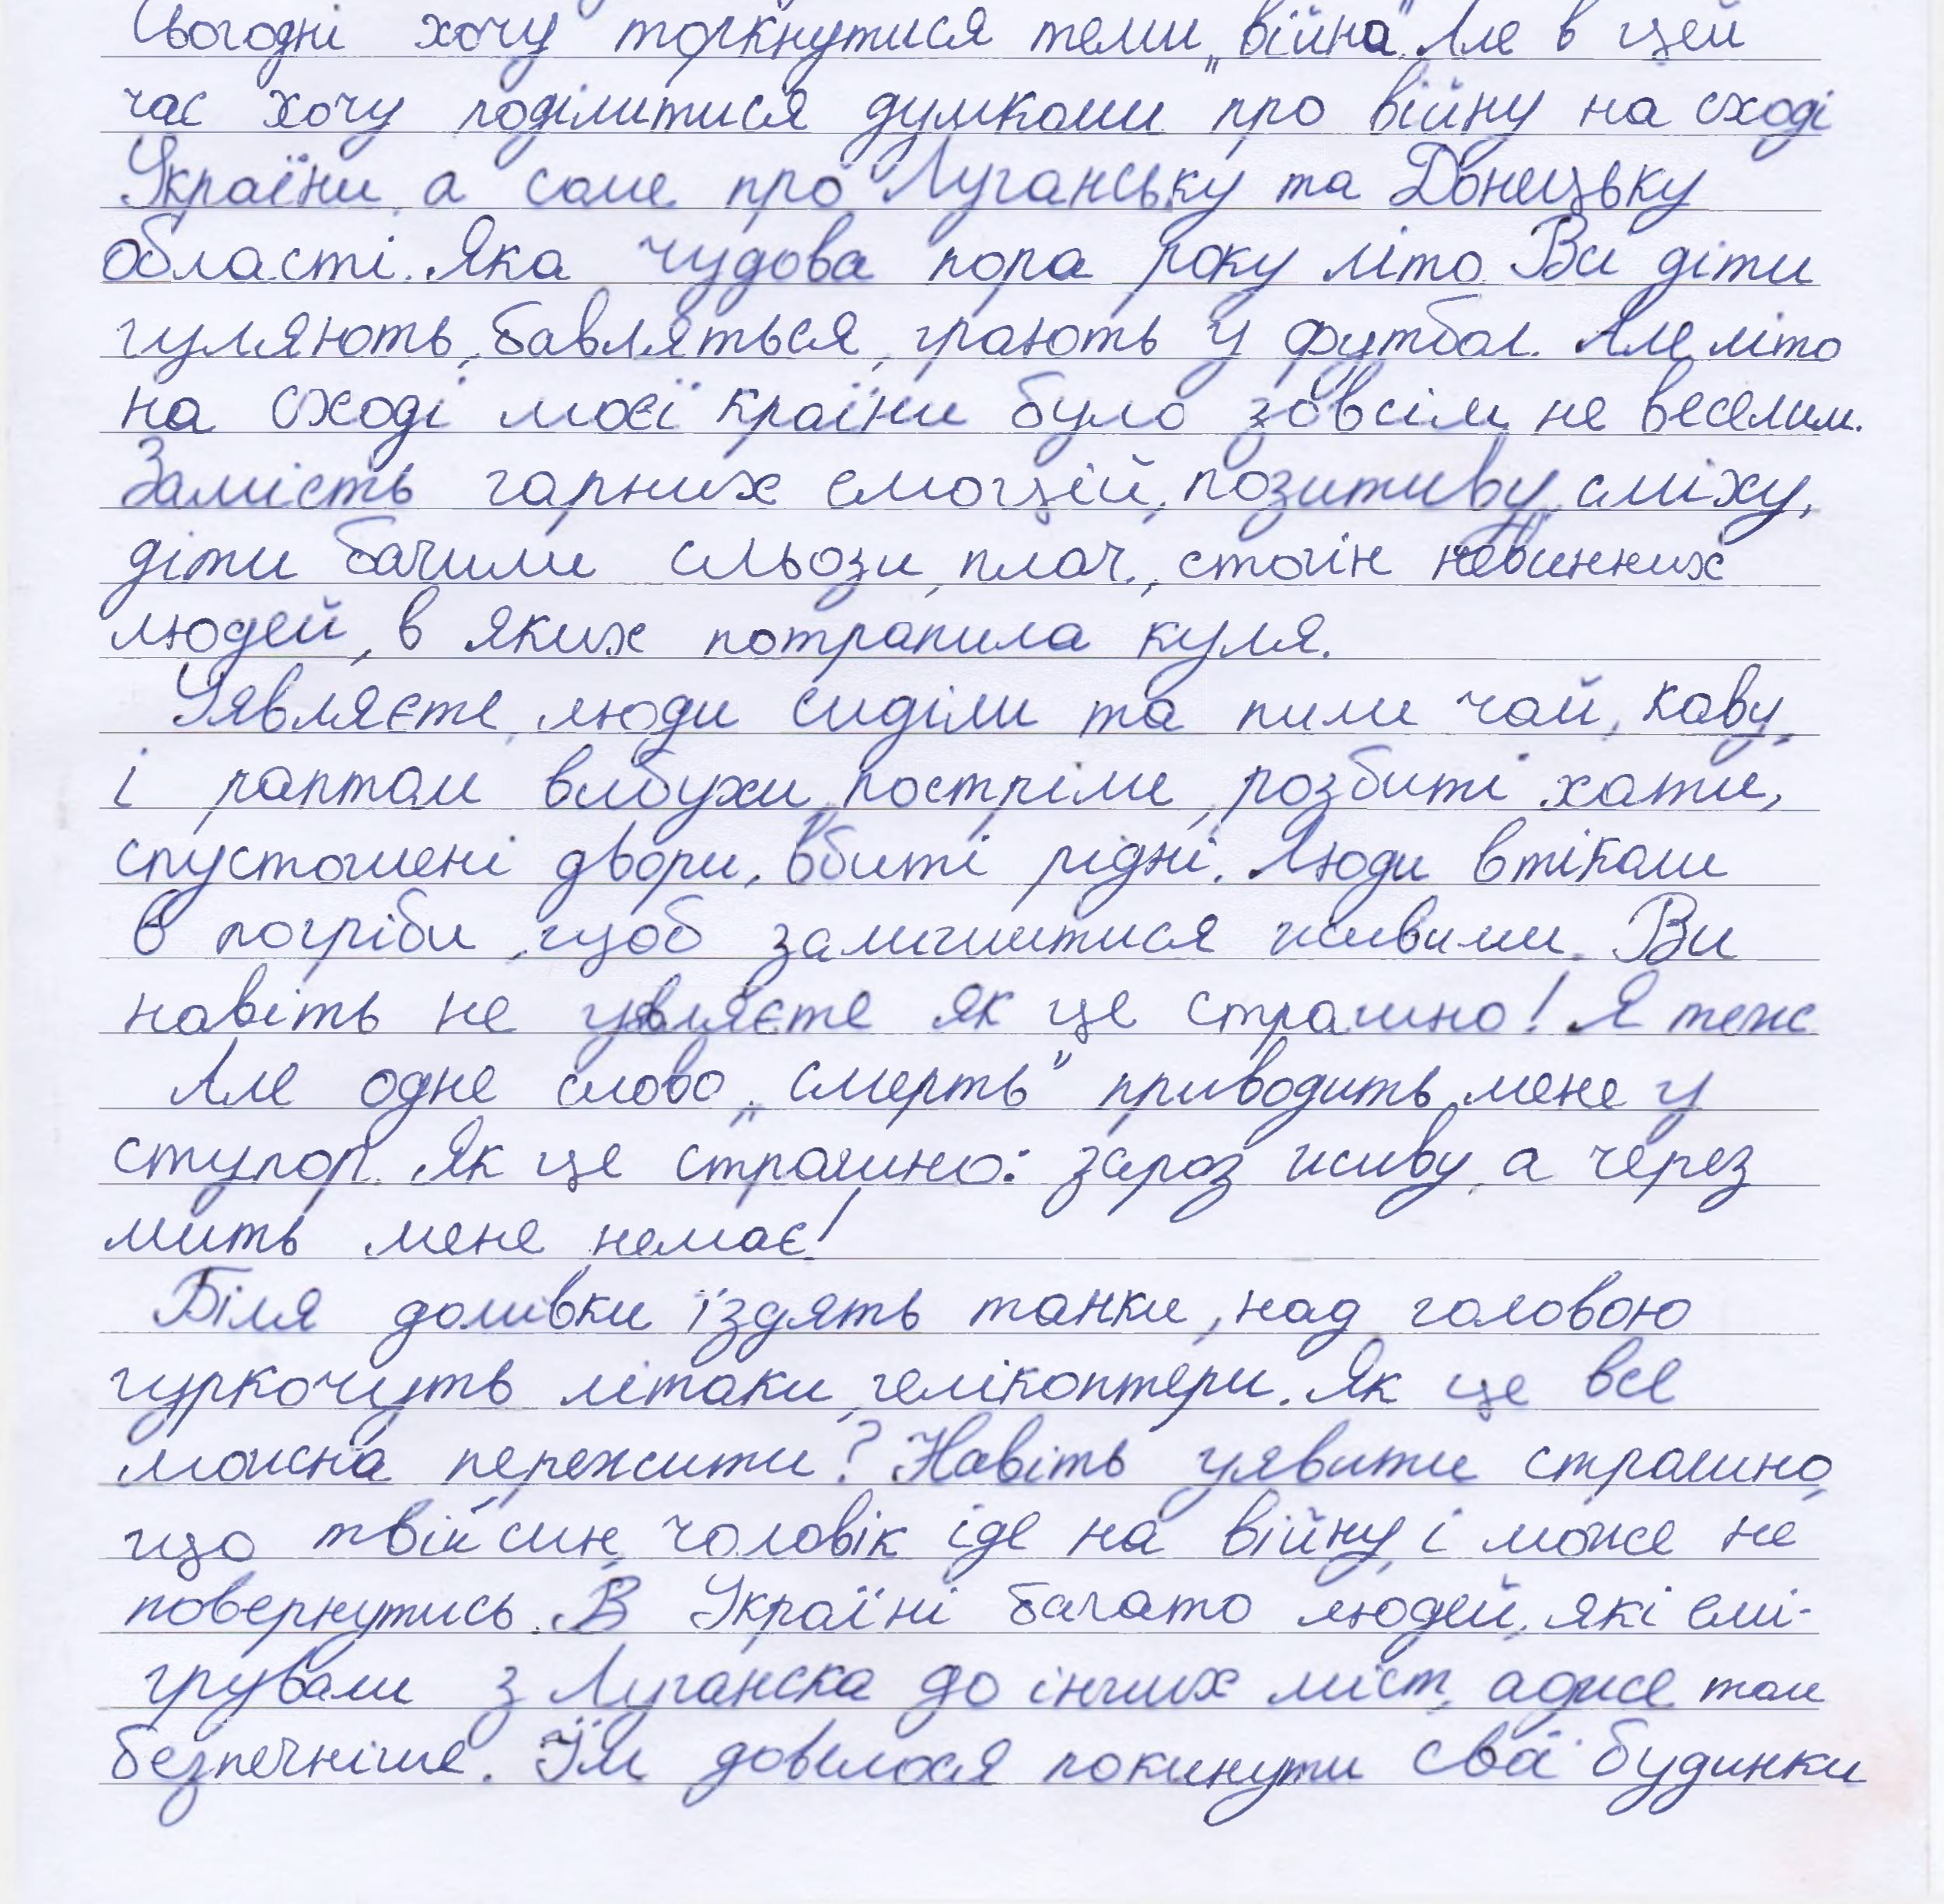 Сьогодні хочу торкнутися теми „війна". Але в цей
час хочу поділитися думками про війну на сході
України, а саме про Луганську та Донецьку
області. Яка чудова пора року літо. Всі діти
гуляють, бавляться, грають у футбол. Але літо
на сході моєї країни було зовсім не веселим.
Замість гарних емоцій, позитиву, сміху,
діти бачили сльози, плач, стогін невинних
людей, в яких потрапила куля.
Уявляєте, люди сиділи та пили чай, каву,
і раптом вибухи, постріли, розбиті хати,
спустошені двори, вбиті рідні. Люди втікали
в погріби, щоб залишитися живими. Ви
навіть не уявляєте як це страшно! Я теж
Але одне слово „смерть" приводить мене у
ступор. Як це страшно: зараз живу, а через
мить мене немає!
Біля домівки їздять танки, над головою
гуркочуть літаки, гелікоптери. Як це все
можна пережити? Навіть уявити страшно,
що твій син, чоловік іде на війну і може не
повернутись. В Україні багато людей, які емі-
грували з Луганска до інших міст, адже там
безпечніше. Їм довелося покинути свої будинки